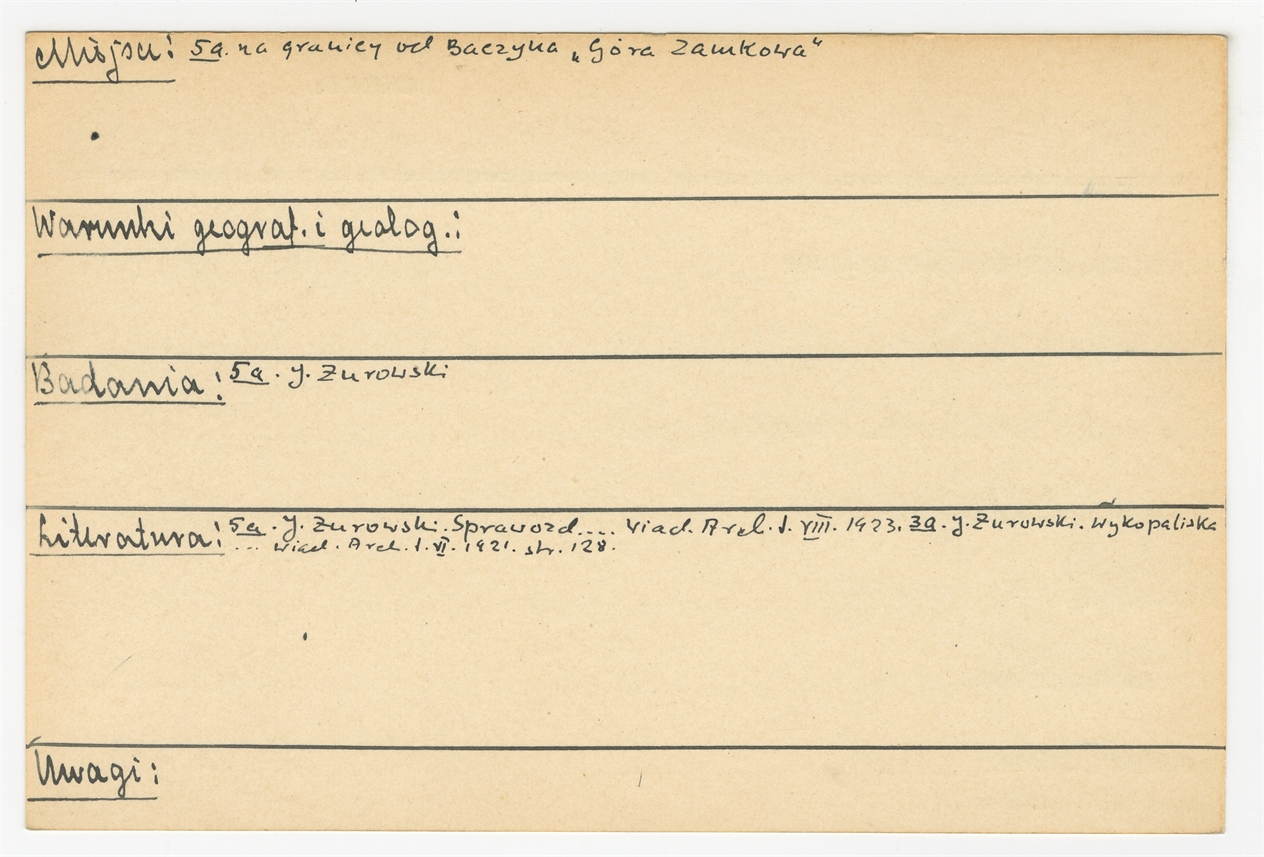 Miejsce: 5a. na granicy od Baczyna „Góra Zamkowa"
Warunki geograf. i geolog.:
Badania: 5a. J. Żurowski
Literatura: 5a. J. Żurowski. Sprawozd.... Wiad. Arch. t. VIII. 1923. 3a. J. Żurowski. Wykopaliska
... Wiad. Arch. t. VI. 1921. str. 128.
Uwagi: